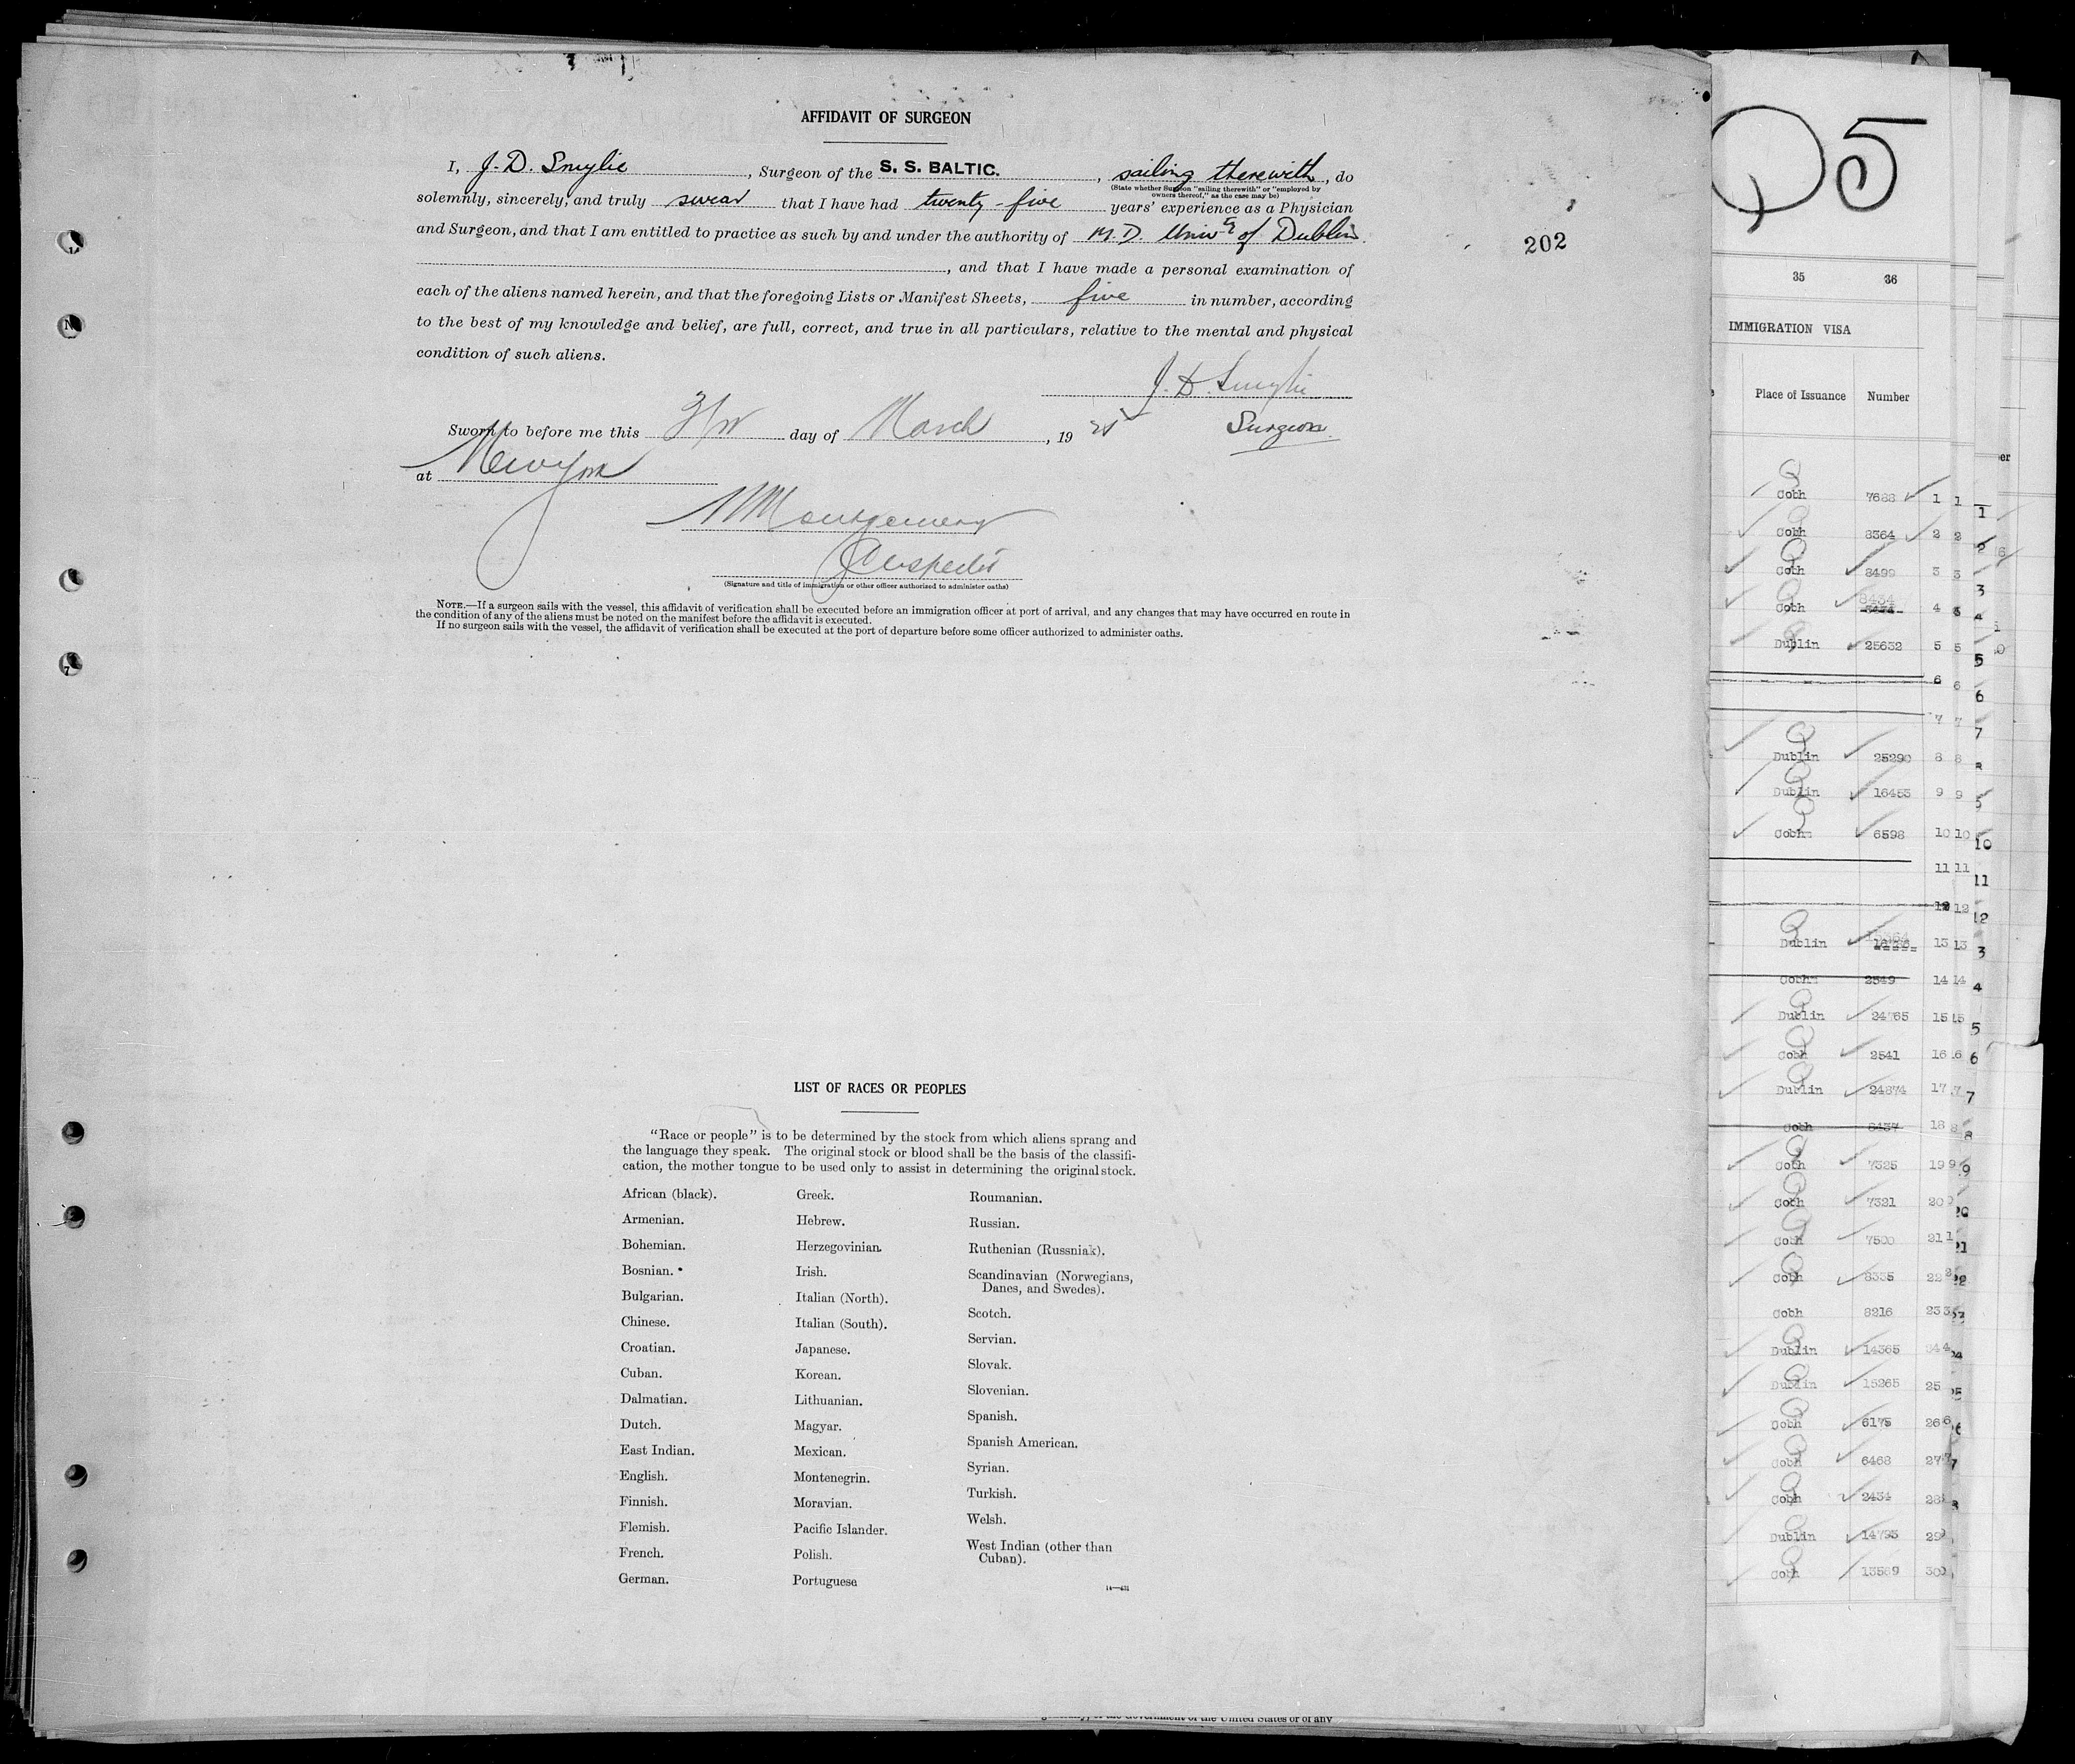 AFFIDAVIT OF SURGEON
I, J. D. Smylie, Surgeon of the S. S. BALTIC., sailing therewith, do
(State whether Surgeon "sailing therewith" or "employed by
owners thereof," as the case may be)
solemnly, sincerely, and truly swear that I have had twenty-five years' experience as a Physician
and Surgeon, and that I am entitled to practice as such by and under the authority of M.D. Univ of Dublin
, and that I have made a personal examination of
each of the aliens named herein, and that the foregoing Lists or Manifest Sheets, five in number, according
to the best of my knowledge and belief, are full, correct, and true in all particulars, relative to the mental and physical
condition of such aliens.
J. D. Smylie
Surgeon.
Sworn to before me this day of March, 19
at New York
Montgomery
Inspector
(Signature and title of immigration or other officer authorized to administer oaths)
NOTE.—If a surgeon sails with the vessel, this affidavit of verification shall be executed before an immigration officer at port of arrival, and any changes that may have occurred en route in
the condition of any of the aliens must be noted on the manifest before the affidavit is executed.
If no surgeon sails with the vessel, the affidavit of verification shall be executed at the port of departure before some officer authorized to administer oaths.
202
LIST OF RACES OR PEOPLES
"Race or people" is to be determined by the stock from which aliens sprang and
the language they speak. The original stock or blood shall be the basis of the classifi-
cation, the mother tongue to be used only to assist in determining the original stock.
African (black).
Armenian.
Bohemian.
Bosnian.
Bulgarian.
Chinese.
Croatian.
Cuban.
Dalmatian.
Dutch.
East Indian.
English.
Finnish.
Flemish.
French.
German.
Greek.
Hebrew.
Herzegovinian.
Irish.
Italian (North).
Italian (South).
Japanese.
Korean.
Lithuanian.
Magyar.
Mexican.
Montenegrin.
Moravian.
Pacific Islander.
Polish.
Portuguese
Roumanian.
Russian.
Ruthenian (Russniak).
Scandinavian (Norwegians,
Danes, and Swedes).
Scotch.
Servian.
Slovak.
Slovenian.
Spanish.
Spanish American.
Syrian.
Turkish.
Welsh.
West Indian (other than
Cuban).
Q5
35 36
IMMIGRATION VISA
Place of Issuance Number
Cobh 7688 1
Cobh 8364 2
Cobh 8499 3
Cobh 8434 4
Dublin 25632 5
6
7
Dublin 25290 8
Dublin 16453 9
Cobh 6598 10
11
12
Dublin 13
Cobh 2549 14
Dublin 24765 15
Cobh 2541 16
Dublin 24874 17
Cobh 8437 18
Cobh 7325 19
Cobh 7321 20
Cobh 7500 21
Cobh 8335 22
Cobh 8216 23
Dublin 14365
Dublin 15265 25
Cobh 6175 26
Cobh 6468 27
Cobh 2434 28
Dublin 14793 29
Cobh 13569 30